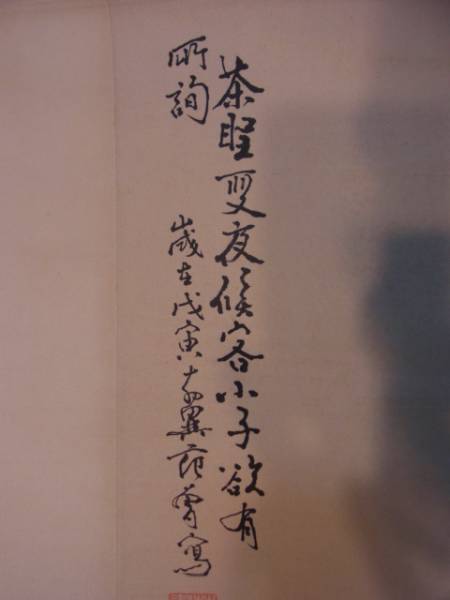 茶聖夏夜候客小子欲有
所詢
歲在戊寅十翼范曾寫